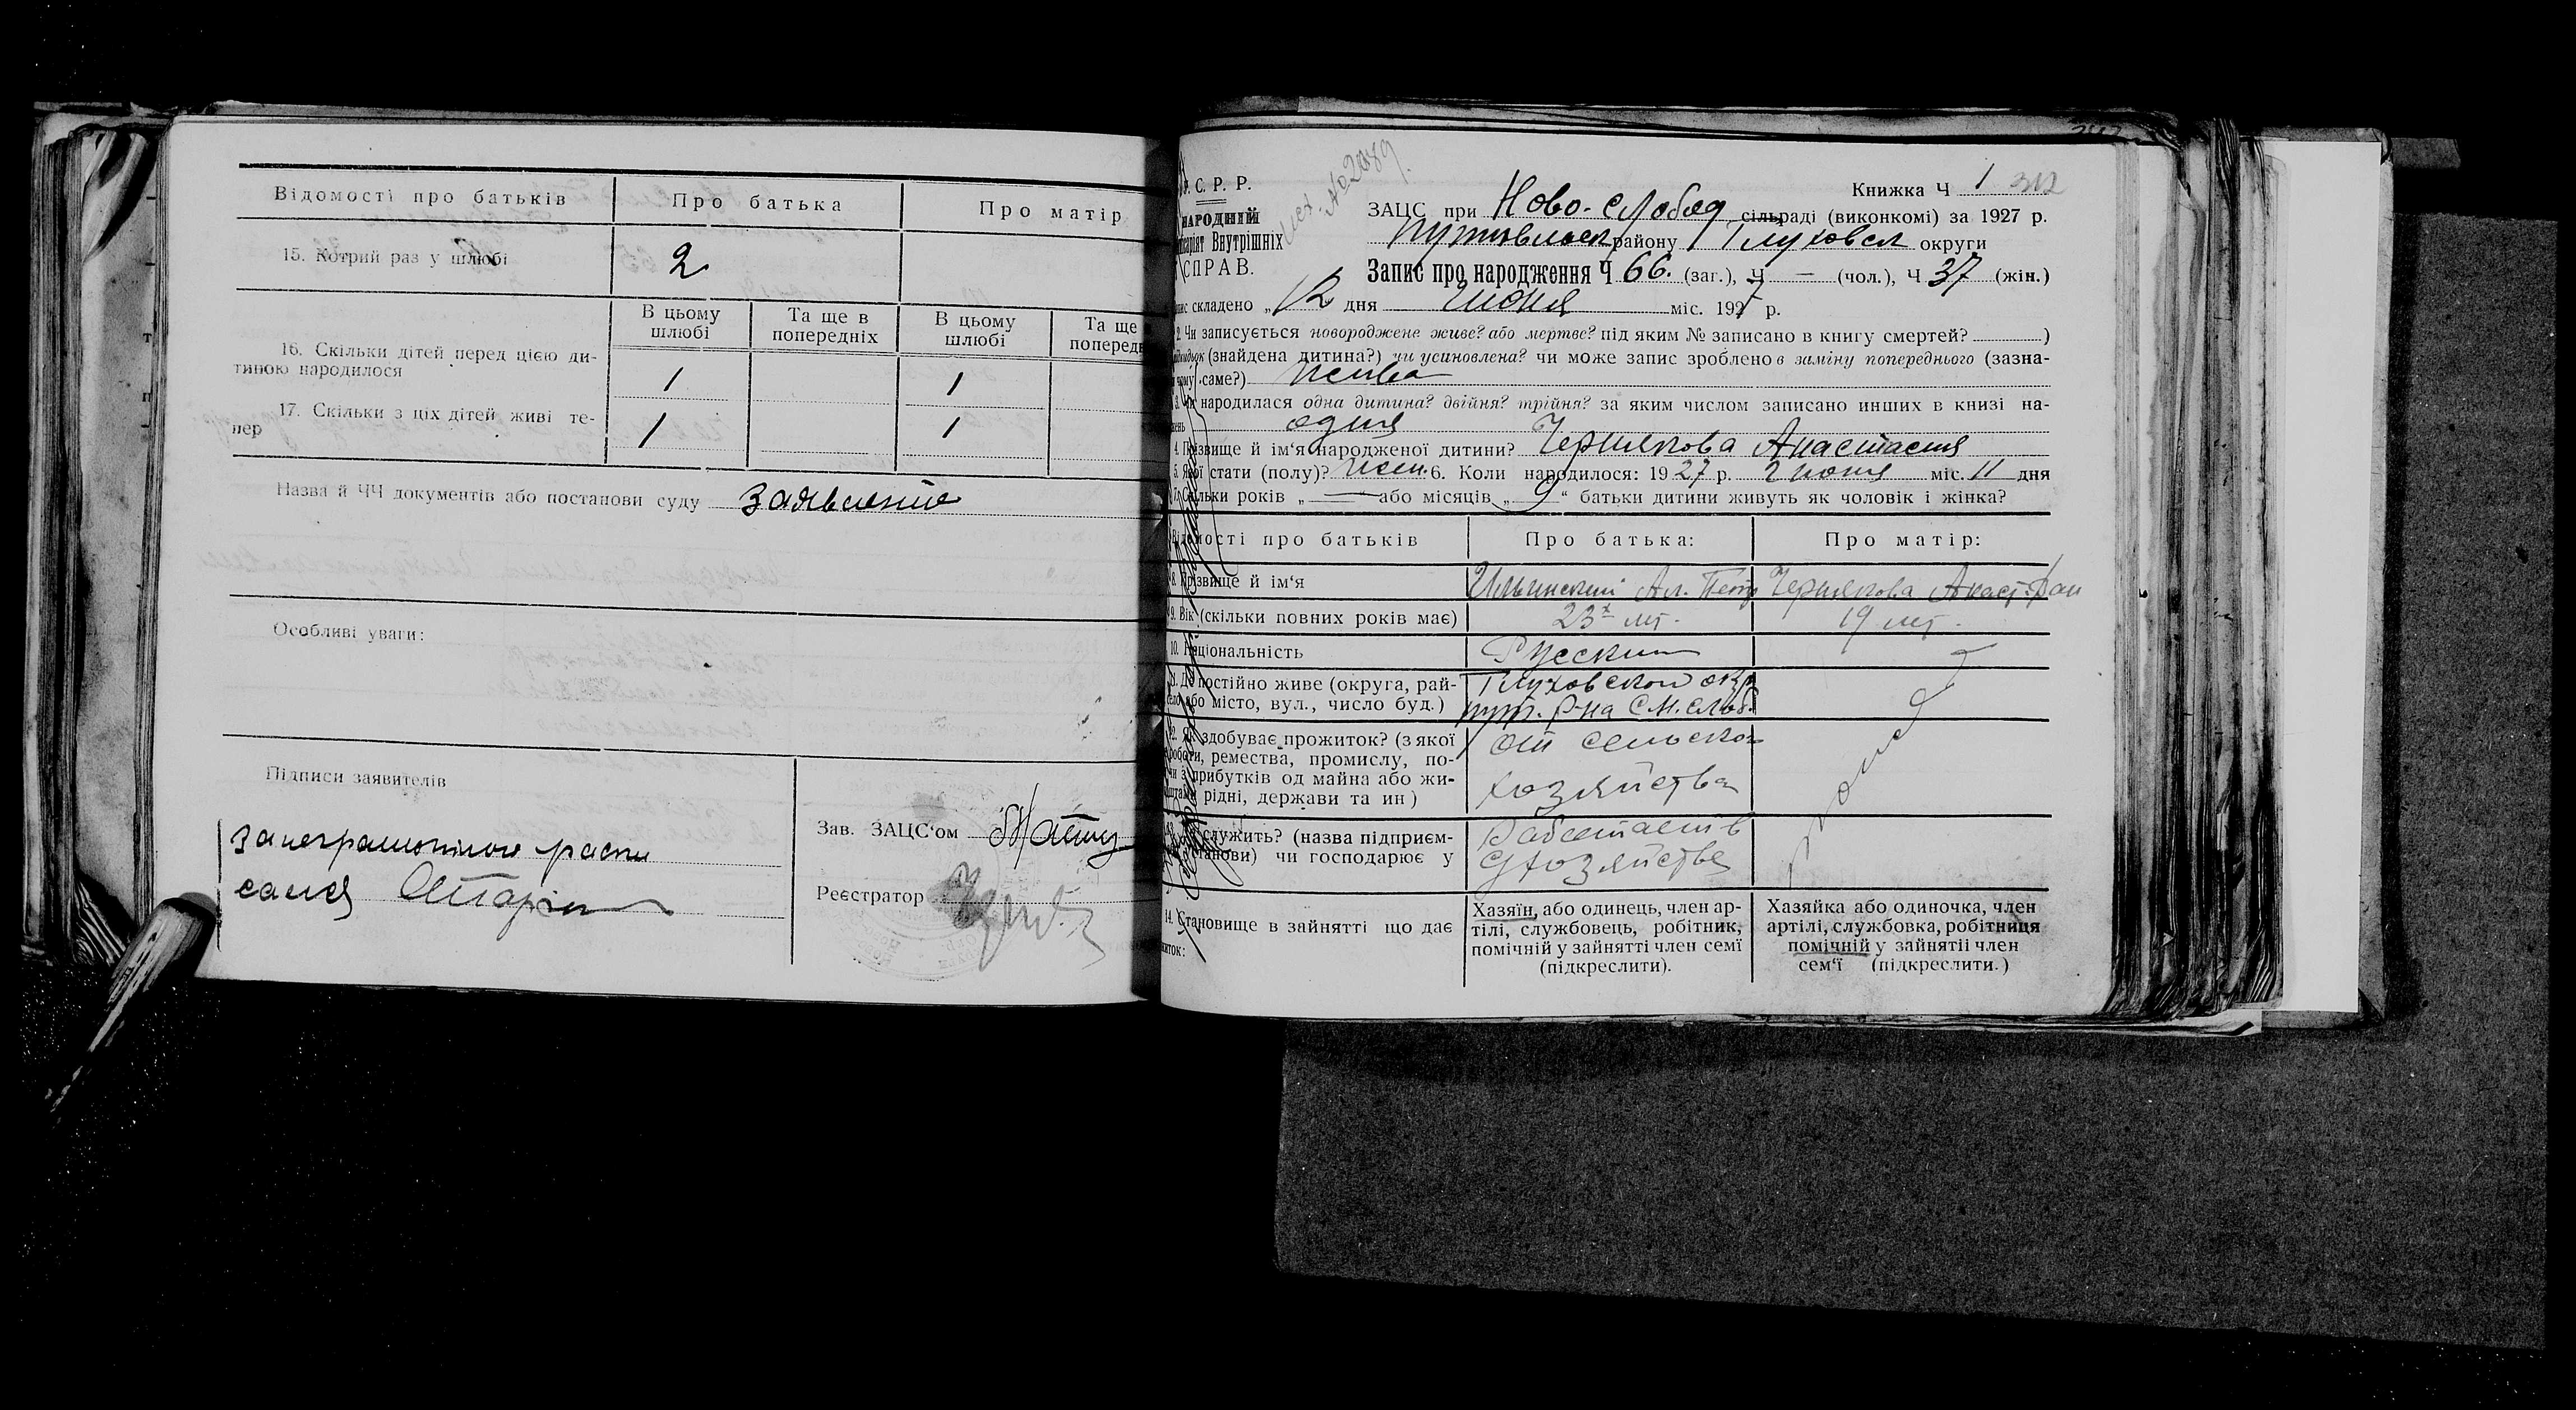 Відомості про батьків Про батька Про матір
15. Котрий раз у шлюбі 2
В цьому шлюбі Та ще в попередніх В цьому шлюбі Та ще
16. Скільки дітей перед цією ди-
тиною народилося 1 1
17. Скільки з ціх дітей живі те-
пер 1 1
Назва й ЧЧ документів або постанови суду заявление
Особливі уваги:
Підписи заявителів
за неграмотного распи
сался
Зав. ЗАЦС‘ом
Реєстратор
С. Р. Р.
НАРОДНІЙ
Внутрішніх
СПРАВ.
№ 2089
Книжка Ч 1 312
ЗАЦС при Ново-слобод сільраді (виконкомі) за 1927 р.
Путивльск району Глуховск округи
Запис про народження Ч 66. (заг.), Ч — (чол.), Ч 37 (жін.)
складено „12 дня июня міс. 1927 р.
2. Чи записується новороджене живе? або мертве? під яким № записано в книгу смертей? )
(знайдена дитина?) чи усиновлена? чи може запис зроблено в заміну попереднього (зазна-
чому саме?) жива
народилася одна дитина? двійня? трійня? за яким числом записано инших в книзі на-
одна
4. Прізвище й ім‘я народженої дитини? Чернякова Анастасия
5. Якої стати (полу)? жен. 6. Коли народилося: 1927 р. Июня міс. 11 дня
7. Скільки років „ — або місяців „ 9 “ батьки дитини живуть як чоловік і жінка?
Відомості про батьків Про батька: Про матір:
8. Прізвище й ім‘я Ильинский Ал. Петр Чернякова Анаст. Дан
9. Вік (скільки повних років має) 23х лет. 19 лет.
10. Національність Русский
11. Де постійно живе (округа, рай- Глуховской окр
село або місто, вул., число буд.) пут. р-на С.Н. Слоб.
12. Як здобуває прожиток? (з якої от сельско
роботи, ремества, промислу, по-
прибутків од майна або жи- хозяйства
рідні, держави та ин)
служить? (назва підприєм- Работает в
чи господарює у с/хозяйстве
14. Становище в зайнятті що дає
Хазяїн, або одинець, член ар-
тілі, службовець, робітник,
помічній у зайнятті член семї
(підкреслити).
Хазяйка або одиночка, член
артілі, службовка, робітниця
помічній у зайнятії член
сем‘ї (підкреслити.)